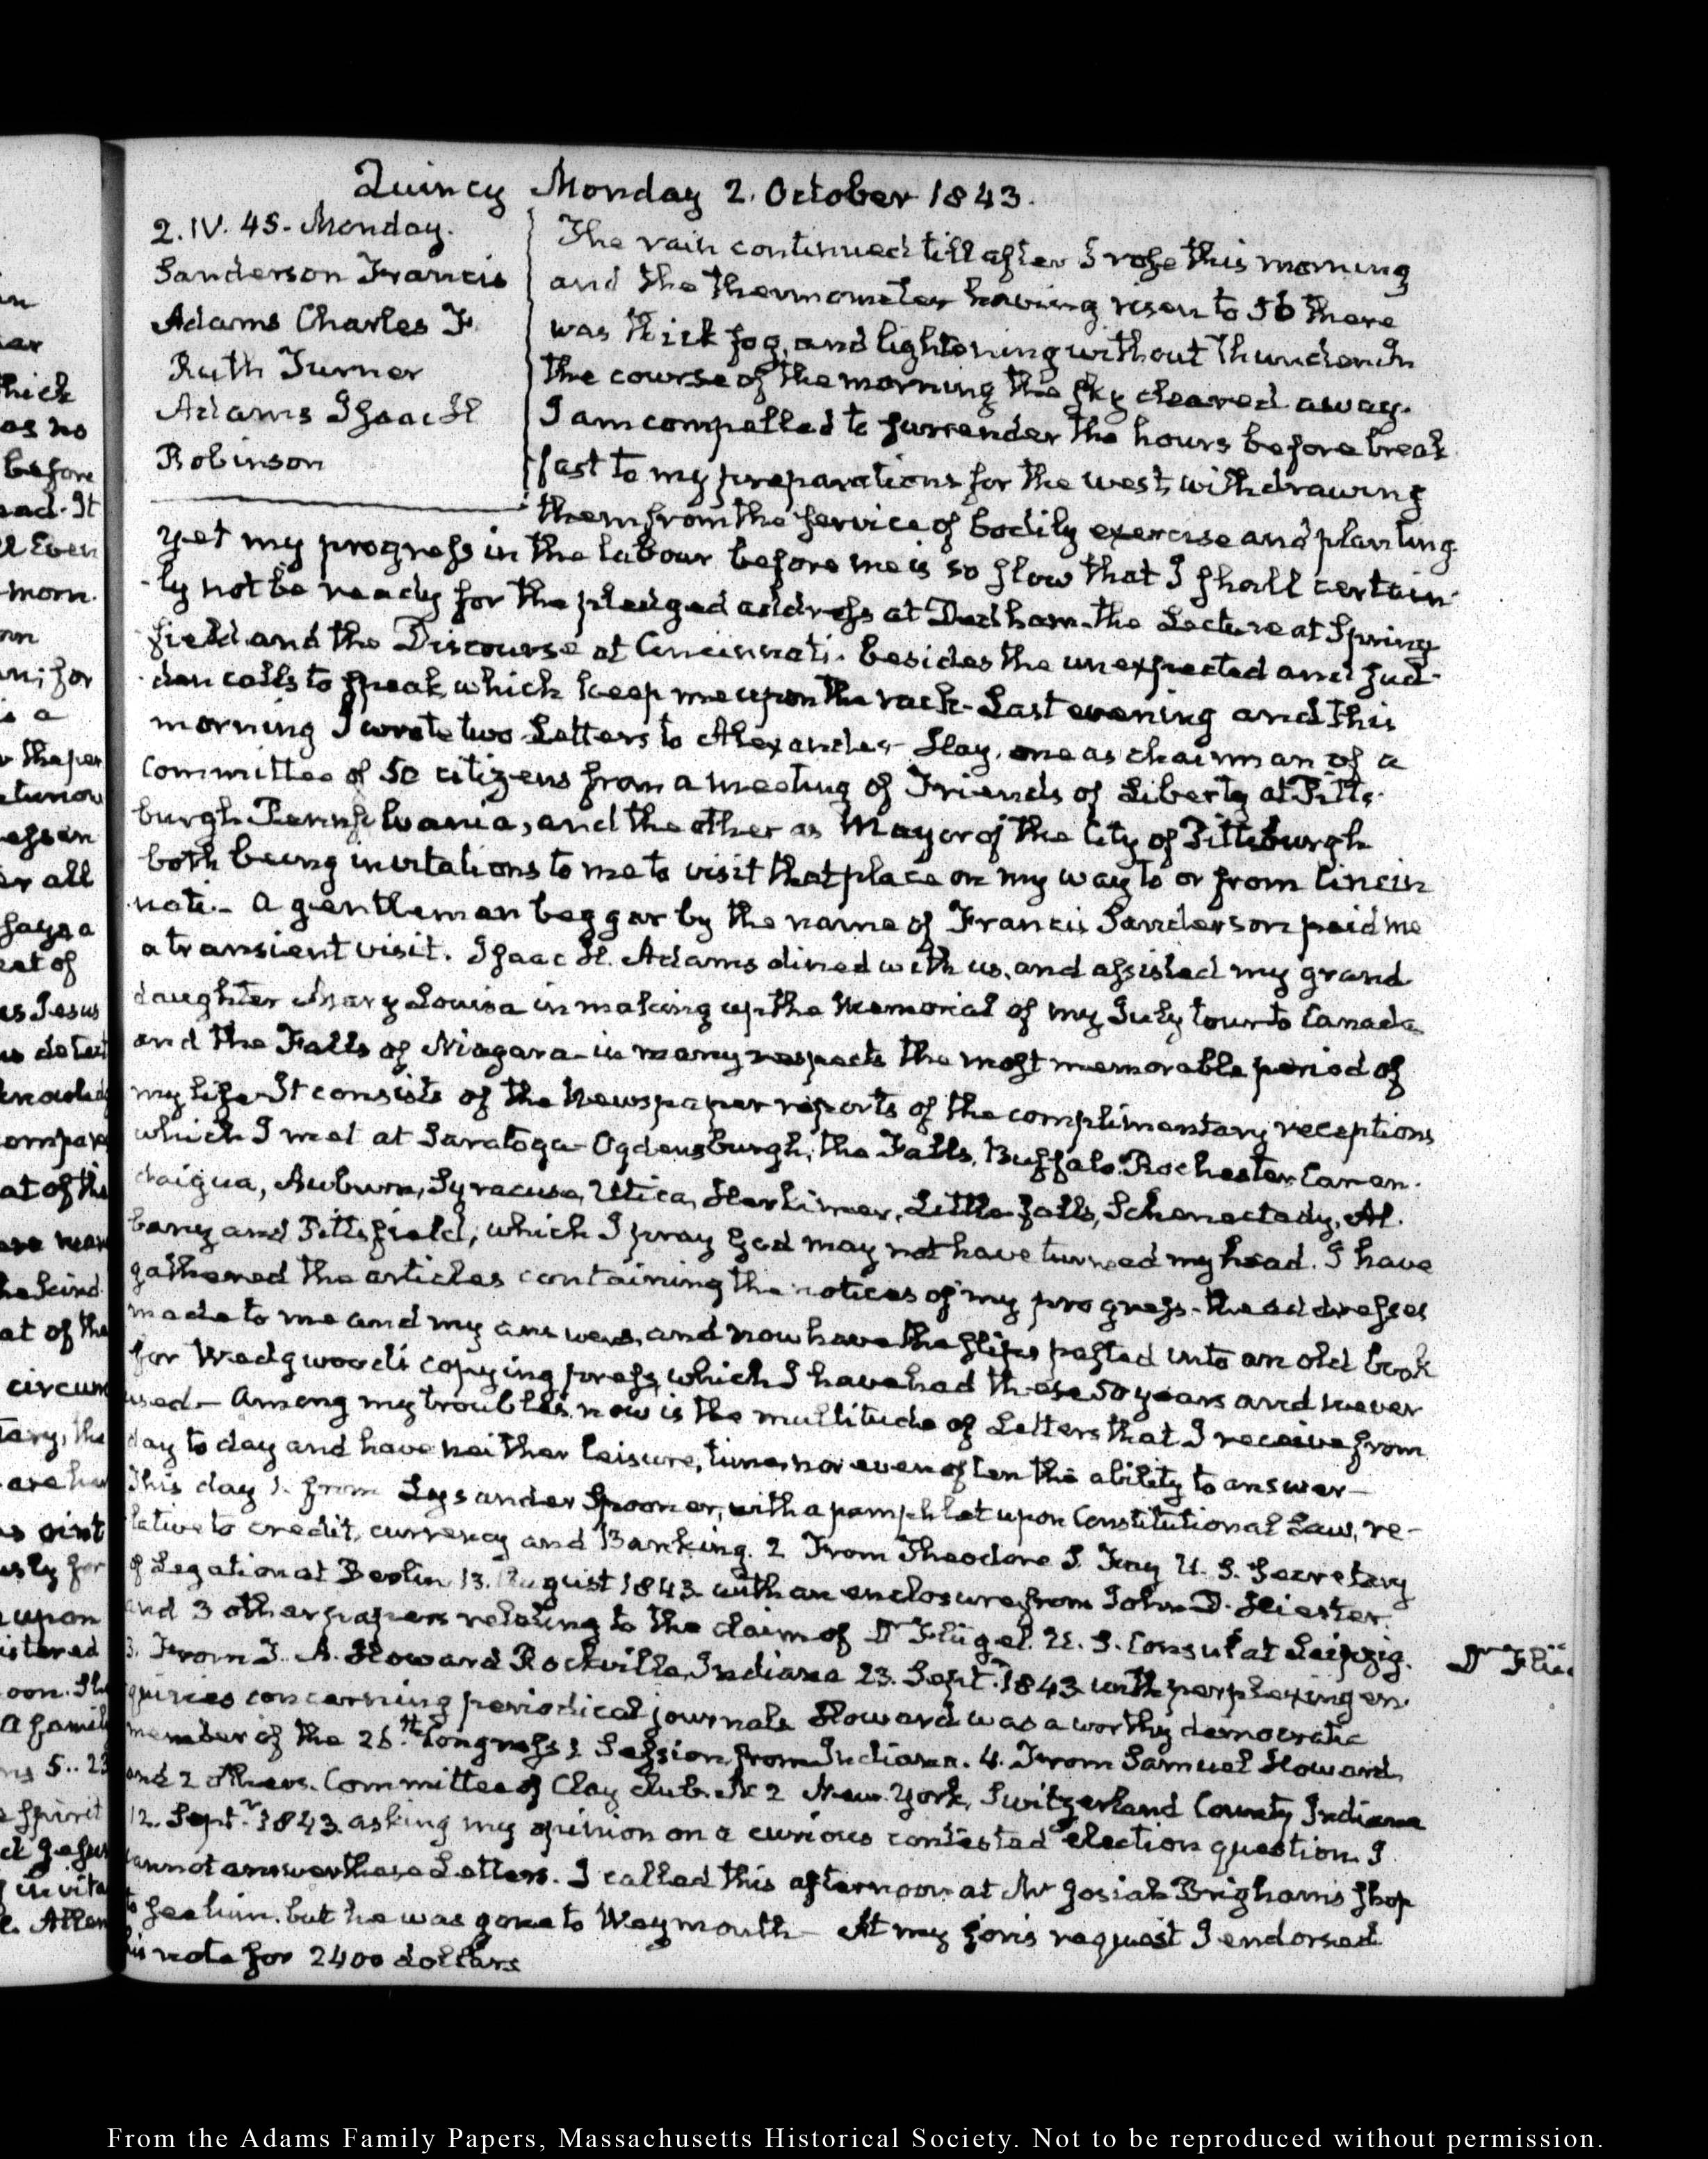 Quincy Monday 2. October 1843.
2. IV. 45. Monday.
Sanderson Francis
Adams Charles F.
Ruth Turner
Adams Isaac H
Robinson
The rain continued till after I rose this morning
and the thermometer having risen to 56 there
was thick fog, and lightening without thunder. In
the course of the morning the sky cleared away.
I am compelled to surrender the hours before break
fast to my preparations for the west, withdrawing
them from the service of bodily exercise and planting
yet my progress in the labour before me is so slow that I shall certain
ly not be ready for the pledged address at Dedham. the Lecture at Spring
field and the Discourse at Cincinnati. besides the unexpected and sud
den calls to speak, which keep me upon the rack. Last evening and this
morning I wrote two Letters to Alexander Hay, one as chairman of a
committee of 50 citizens from a meeting of Friends of Liberty at Pitts
burgh Pennsylvania, and the other as Mayor of the City of Pittsburgh
both being invitations to me to visit that place on my way to or from Cincin
nati. A gentleman beggar by the name of Francis Sanderson paid me
a transient visit. Isaac H. Adams dined with us, and assisted my grand
daughter Mary Louisa in making up the Memorial of my July tour to Canada
and the Falls of Niagara in many respects the most memorable period of
my life. It consists of the Newspaper reports of the complimentary receptions
which I met at Saratoga Ogdensburgh, the Falls, Buffalo. Rochester Canan
daigua, Auburn, Syracuse, Utica, Herkimer, Little falls, Schenectady, Al
bany and Pittsfield, which I pray God may not have turned my head. I have
gathered the articles containing the notices of my progress. the addresses
made to me and my answers, and now have the slips pasted into an old book
for Wedgwood's copying press, which I have had these 50 years and never
used. Among my troubles now is the multitude of Letters that I receive from
day to day and have neither leisure, time, nor even often the ability to answer—
This day 1. from Lysander Spooner, with a pamphlet upon Constitutional Law, re-
lative to credit, currency and Banking. 2 From Theodore S. Fay U. S. Secretary
of Legation at Berlin 13. August 1843 with an enclosure from John D. Hiester
and 3 other papers relating to the claim of Dr Flügel. U. S. Consul at Leipzig.
3. From T. A. Howard Rockville, Indiana 23. Septr 1843 with perplexing en
quiries concerning periodical journals Howard was a worthy democratic
member of the 26th Congress 2 Session from Indiana. 4. From Samuel Howard
and 2 others. Committee of Clay Club. No 2 New York, Switzerland County Indiana
12. Septr 1843. asking my opinion on a curious contested election question. I
cannot answer these Letters. I called this afternoon at Mr Josiah Brigham's shop
to see him, but he was gone to Weymouth— At my son's request I endorsed
his note for 2400 dollars
From the Adams Family Papers, Massachusetts Historical Society. Not to be reproduced without permission.